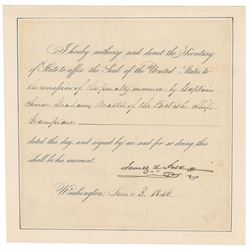 I hereby authorize and direct the Secretary
of State to affix the Seal of the United States to
a remission of the penalty incurred by Captain
James Graham, Master of the British Ship
Grampian
dated this day, and signed by me and for so doing this
shall be his warrant.
James K Polk
Washington, June 3, 1846